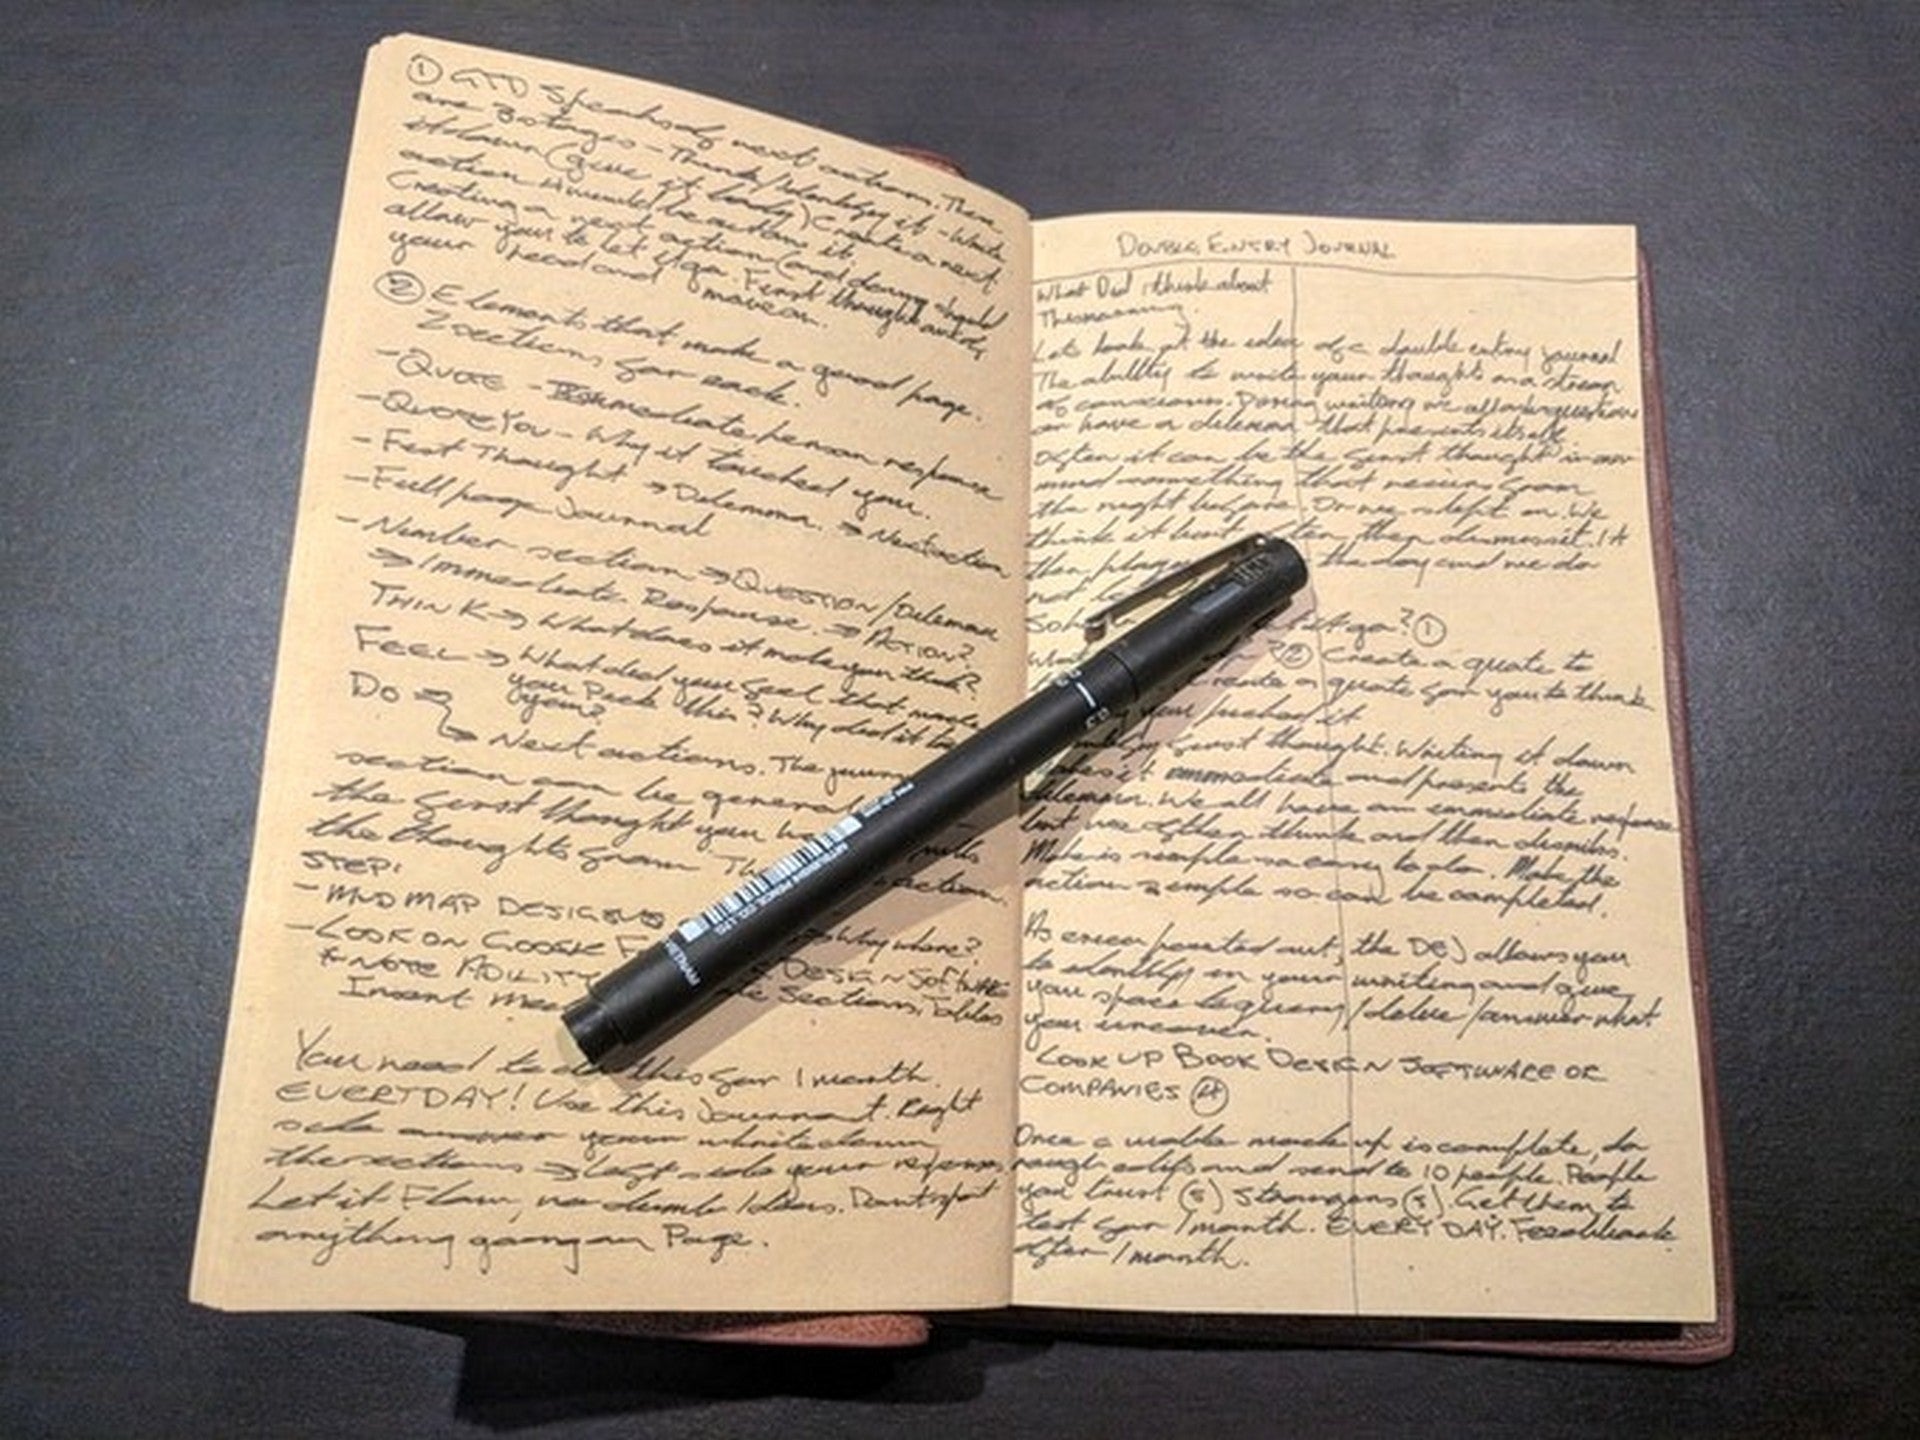 ① GTD speaks of next actions. There
are 3 stages - Think/Identify it - Write
it down (give it body) Create a next
action
Creating a next action (and doing should
allow you to let it go. First thought
your head and move on.
② Elements that make a good page.
2 sections for each.
- QUOTE - Immediate person response
- QUOTE YOU - Why it touched you.
- First Thought → Dilemma. → Next action
- Full page Journal
- Number section → QUESTION/Dilemma
→ Immediate Response. → ACTION?
THINK → What does it make you think?
FEEL → What did you feel that made
you Pick this? Why did it
you?
DO →
→ Next actions. The
section can be
the first thought you
the thoughts from
STEP:
- MUD MAP DESIGNS → Why where?
- LOOK ON GOOGLE DESIGN SOFTWARE
* NOTE ABILITY
Insert Sections, Tables
You need to do this for 1 month.
EVERYDAY! Use this Journal. Right
side answer your write down
the sections → Left side your
Let it Flow, no dumb Ideas. Don't
anything going on Page.
DOUBLE ENTRY JOURNAL
What Did I think about
This morning.
Lets look at the idea of a double entry journal
The ability to write your thoughts in a stream
of conscious. During writing we all
or have a dilemma that presents itself.
Often it can be the first thought in our
mind something that recurs from
the night before. Or we slept on. We
think it but often then dismiss it. It
then the day and we do
not
it go? ①
② Create a quote to
create a quote for you to think
you picked it
first thought. Writing it down
makes it immediate and presents the
dilemma. We all have an immediate response
but we often think and then dismiss.
Make is simple so easy to do. Make the
action simple so can be completed.
As pointed out, the DEJ allows you
to identify in your writing and give
you space to query/delve/answer what
you uncover.
LOOK UP BOOK DESIGN SOFTWARE OR
COMPANIES ④
Once a usable mock up is complete, do
rough edits and send to 10 people. People
you trust (5) Strangers (5). Get them to
test for 1 month. EVERY DAY. Feedback
after 1 month.
MITSUBISHI PENCIL CO., LTD.
VIETNAM